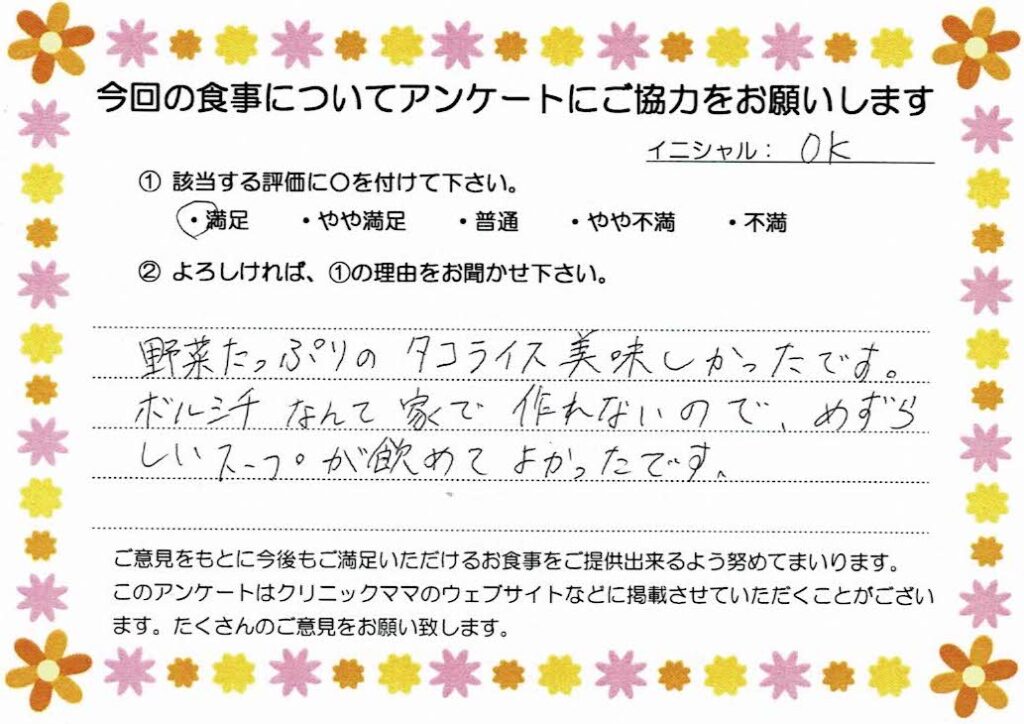 今回の食事についてアンケートにご協力をお願いします
イニシャル： OK
① 該当する評価に○を付けて下さい。
・満足 ・やや満足 ・普通 ・やや不満 ・不満
② よろしければ、①の理由をお聞かせ下さい。
野菜たっぷりの タコライス美味しかったです。
ボルシチ なんて 家で 作れないので、めずら
しいスープが飲めて よかったです。
ご意見をもとに今後もご満足いただけるお食事をご提供出来るよう努めてまいります。
このアンケートはクリニックママのウェブサイトなどに掲載させていただくことがござい
ます。たくさんのご意見をお願い致します。